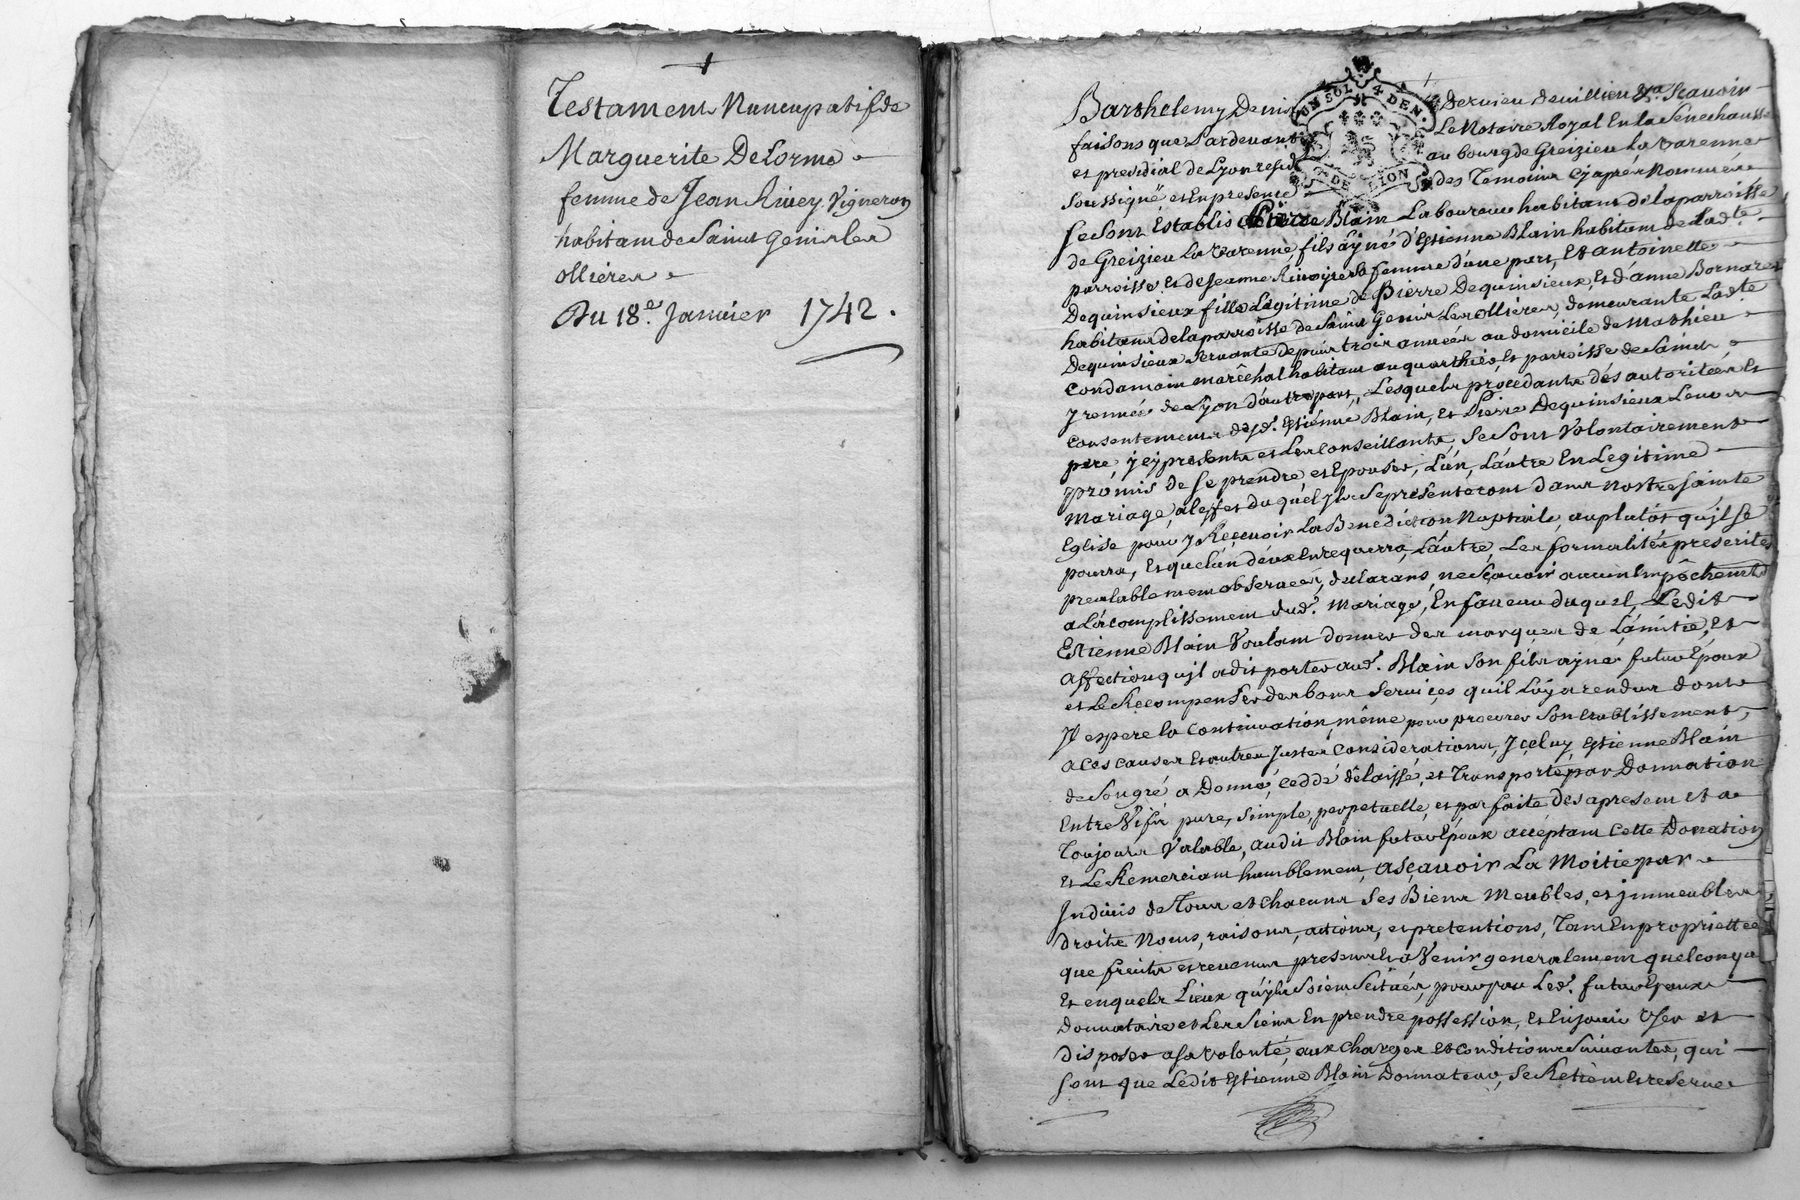 Testament Nuncupatif de
Marguerite Delorme
femme de Jean Rivey Vigneron
habitant de Saint Genis les
ollieres
Du 18.e Janvier 1742.
UN SOL 4 DEN.
DE LION
Barthelemy Denis Dervieu Devillieu &ra Scavoir
faisons que Pardevant Le Notaire Royal En la Senechaussée
et presidial de Lyon resid au bourg de Greizieu La Varenne
Soussigné et En presence des Temoins Cyapres Nommés
Se Sont Establis Pierre Blain Laboureur habitant de la parroisse
de Greizieu La Varenne, fils ayné d'Estienne Blain habitant de Lad.te
parroisse et de Jeanne femme d'une part, Et antoinette
Dequinsieux fille Legitime de Pierre Dequinsieux, et d'anne Bornard
habitans de la parroisse de Saint Genis Les ollieres, demeurante Lad.te
Dequinsieux Servante depuis trois années au domicile de Mathieu
Condamain maréchal habitant au quarthier, et parroisse de Saint
yrennée de Lyon d'autre part, Lesquels procedants des autoritées et
consentements desd. Estienne Blain, et Pierre Dequinsieux Leurs
pere, y cy presents et Les Conseillants, Se Sont Volontairement
promis de Se prendre, et Epouser, L'un, L'autre En Legitime
Mariage, a l'effet du quel yls Se presenteront dans Nostre Sainte
Eglise pour y Recevoir La Benediction Nuptiale, au plutôt qu'jl Se
pourra, et que L'un d'eux En requerra, L'autre, Les formalités prescrites
prealablement observées, declarans, ne Scavoir aucun Empêchement
a L'accomplissement dud. Mariage, En faveur duquel, Ledit
Estienne Blain Voulant donner des marques de L'amitie, et
affection qu'jl a dit porter aud. Blain Son fils ayné futur Epoux
et Le Recompenser des bons Services, qu'il Luy a rendus dont
Jl espere la Continuation, même pour procurer Son Etablissement,
a Ces causes et autres Justes Considerations, Jceluy Estienne Blain
de Son gré a Donné, Ceddé délaissé, et Transporté, par Donnation
Entre Vifs pure, Simple, perpetuelle, et parfaite des apresent et a
Toujours Valable, audit Blain futur Epoux acceptant Cette Donnation
et Le Remerciant humblement, asçavoir La Moitie par
Jndivis de Tous et Chacuns Ses Biens Meubles, et jmmeubles
droits Noms, raisons, actions, et pretentions, Tant En proprietté
que fruits et revenus presents et a Venir generalement quelconques
Et en quels Lieux qu'yls Soient Scitués, pour par Led. futur Epoux
Donnataire et Les Siens En prendre possession, et En jouir User et
disposer a Sa Volonté, aux Charges et conditions Suivantes, qui
Sont que Ledit Estienne Blain Donnateur, Se Retient et reserve